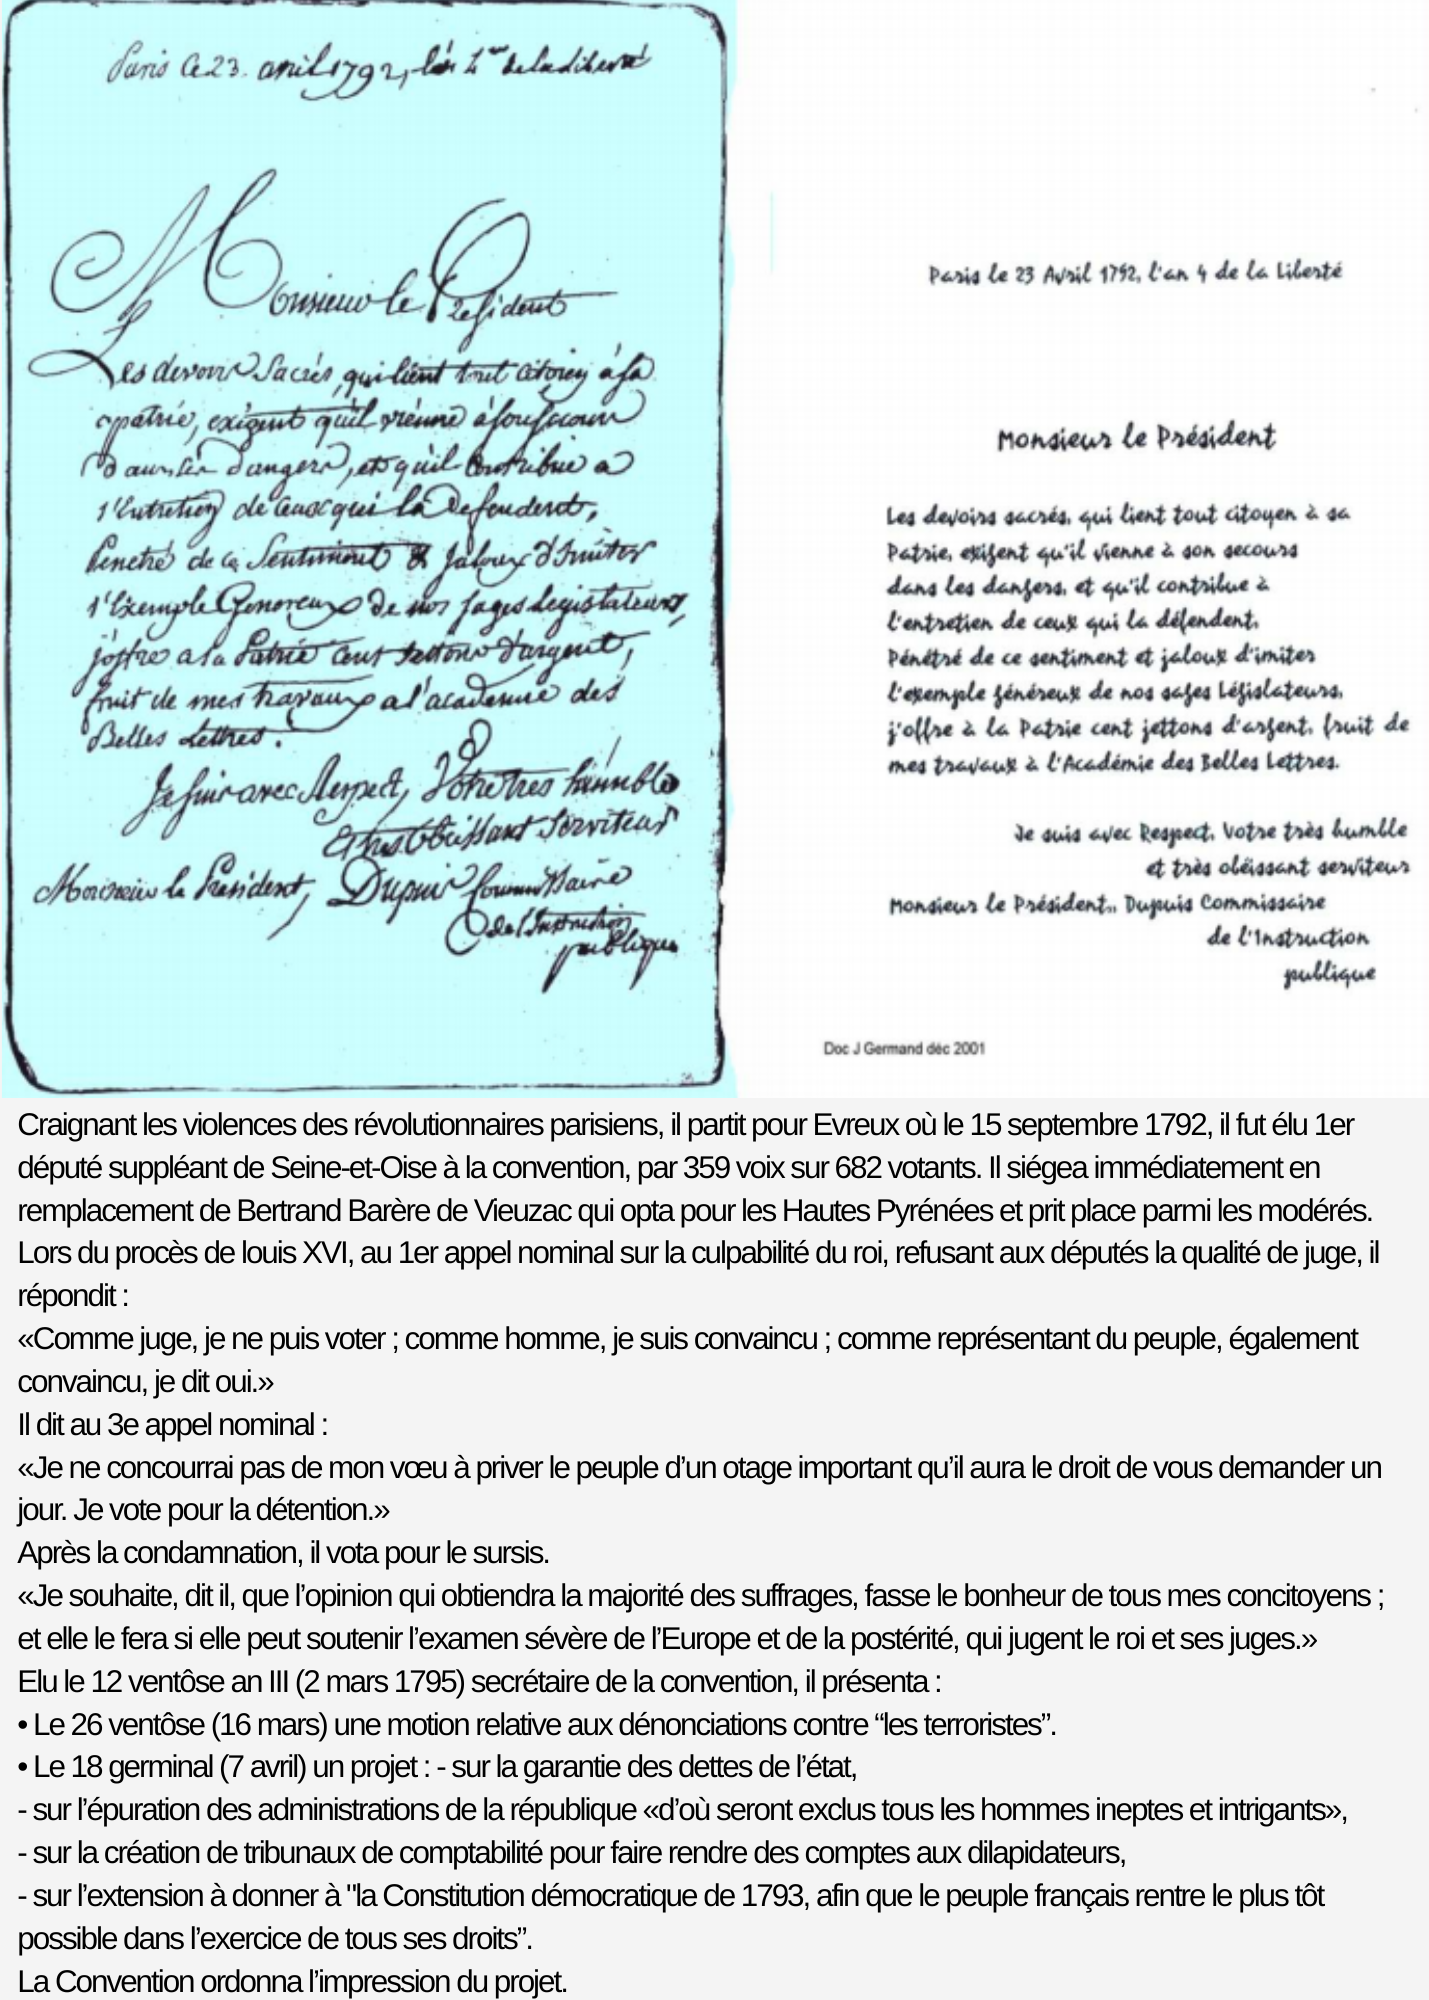 Paris Ce 23. avril 1792, l'an 4me de la liberté
Monsieur le President
Les devoirs Sacrés, qui lient tout Citoyen à sa
patrie, exigent qu'il vienne à son secours
dans les dangers, et qu'il Contribue a
l'Entretien de Ceux qui la Defendent,
Penetré de ce Sentiment & Jaloux d'Imiter
l'Exemple Genereux de nos sages legislateurs,
j'offre a la Patrie Cent Jettons d'argent,
fruit de mes travaux a l'academie des
Belles Lettres.
Je suis avec Respect, Votre tres humble
& tres Obeissant Serviteur
Monsieur le President, Dupuis Commissaire
de l'Instruction
publique
Paris le 23 Avril 1792, l'an 4 de la Liberté
Monsieur le Président
Les devoirs sacrés, qui lient tout citoyen à sa
Patrie, exigent qu'il vienne à son secours
dans les dangers, et qu'il contribue à
l'entretien de ceux qui la défendent,
Pénétré de ce sentiment et jaloux d'imiter
l'exemple généreux de nos sages Législateurs,
j'offre à la Patrie cent jettons d'argent, fruit de
mes travaux à l'Académie des Belles Lettres.
Je suis avec Respect, Votre très humble
et très obéissant serviteur
Monsieur le Président,, Dupuis Commissaire
de l'Instruction
publique
Doc J Germand déc 2001
Craignant les violences des révolutionnaires parisiens, il partit pour Evreux où le 15 septembre 1792, il fut élu 1er
député suppléant de Seine-et-Oise à la convention, par 359 voix sur 682 votants. Il siégea immédiatement en
remplacement de Bertrand Barère de Vieuzac qui opta pour les Hautes Pyrénées et prit place parmi les modérés.
Lors du procès de louis XVI, au 1er appel nominal sur la culpabilité du roi, refusant aux députés la qualité de juge, il
répondit :
«Comme juge, je ne puis voter ; comme homme, je suis convaincu ; comme représentant du peuple, également
convaincu, je dit oui.»
Il dit au 3e appel nominal :
«Je ne concourrai pas de mon vœu à priver le peuple d’un otage important qu’il aura le droit de vous demander un
jour. Je vote pour la détention.»
Après la condamnation, il vota pour le sursis.
«Je souhaite, dit il, que l’opinion qui obtiendra la majorité des suffrages, fasse le bonheur de tous mes concitoyens ;
et elle le fera si elle peut soutenir l’examen sévère de l’Europe et de la postérité, qui jugent le roi et ses juges.»
Elu le 12 ventôse an III (2 mars 1795) secrétaire de la convention, il présenta :
• Le 26 ventôse (16 mars) une motion relative aux dénonciations contre “les terroristes”.
• Le 18 germinal (7 avril) un projet : - sur la garantie des dettes de l’état,
- sur l’épuration des administrations de la république «d’où seront exclus tous les hommes ineptes et intrigants»,
- sur la création de tribunaux de comptabilité pour faire rendre des comptes aux dilapidateurs,
- sur l’extension à donner à "la Constitution démocratique de 1793, afin que le peuple français rentre le plus tôt
possible dans l’exercice de tous ses droits”.
La Convention ordonna l’impression du projet.